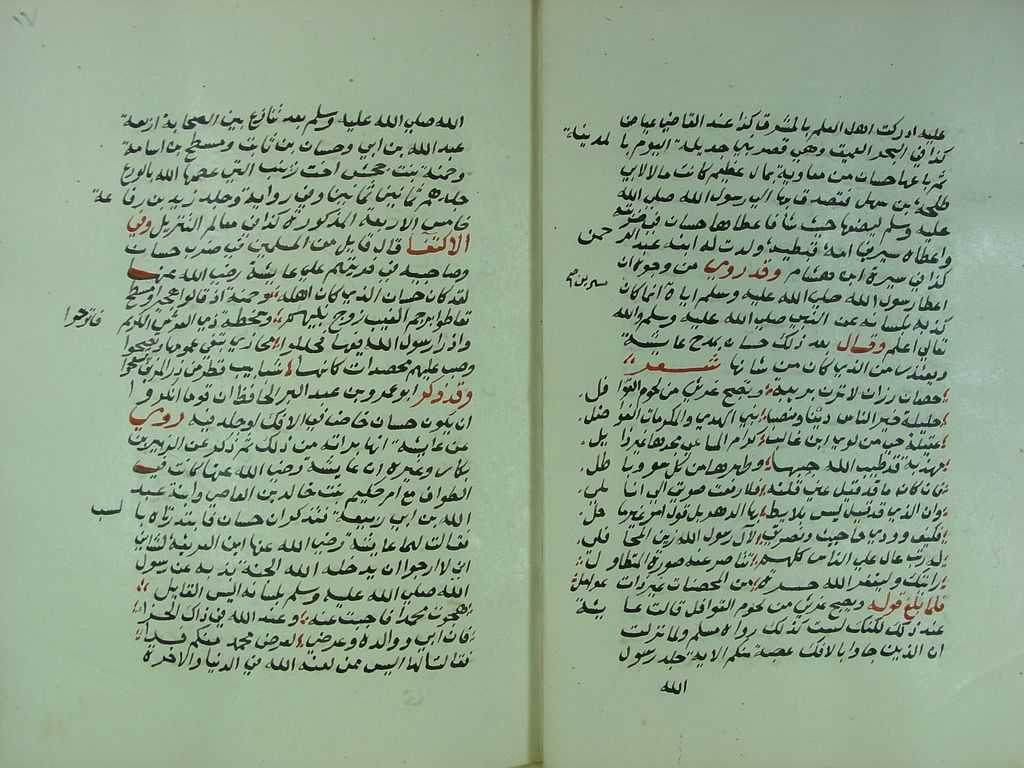 عليه ادركت اهل العلم بالمشرق كذا عند القاضي عياض
كذا في البحر العميق وهي قصر بني جديلة اليوم بالمدينة
ثم باعها حسان من معاوية بمال عظيم كانت مالا لابي
طلحة بن سهل فتصدق بها الى رسول الله صلى الله
عليه وسلم ليضعها حيث شا فاعطاها حسان في
واعطاه سيرين امة قبطية ولدت له ابنه عبد الرحمن
كذا في سيرة ابن هشام وقد روي من وجوه ان
اعطا رسول الله صلى الله عليه وسلم اياه انما كان
سيرين
لذبه بلسانه عن النبي صلى الله عليه وسلم والله
تعالى اعلم وقال بعد ذلك حسان يمدح عايشة
ويعتذر من الذي كان من شانها شعر
حصان رزان لا تزن بريبة وتصبح غرثى من لحوم الغوافل
حليلة خير الناس دينا ومنصبا نبي الهدى والمكرمات الفواضل
عقيلة حي من لوي ابن غالب كرام المساعي مجدها غير زايل
مهذبة قد طيب الله خيمها وطهرها من كل سوء وباطل
فان كان ما قد قيل عني قلته فلا رفعت صوتي الي اناملي
وان الذي قد قيل ليس بلايط بها الدهر بل قول امر غير ماحل
فكيف وودي ما حييت ونصرتي لآل رسول الله زين المحافل
له رتب عال على الناس كلهم تقاصر عنه صورة المتطاول
رايتك وليغفر لك الله حرة من المحصنات غير ذات غوايل
فلما بلغ قوله وتصبح غرثى من لحوم الغوافل قالت عايشة
عنه ذلك لكنك لست كذلك رواه مسلم ولما نزلت
ان الذين جاوا بالافك عصبة منكم الاية جلد رسول
الله
١٧
الله صلى الله عليه وسلم بعد تنازع بين الصحابة اربعة
عبد الله بن ابي وحسان بن ثابت ومسطح بن اثاثة
وحمنة بنت جحش اخت زينب التي عصمها الله بالورع
جلدهم ثمانين ثمانين وفي رواية وجلد زيد بن رفاعة
خامس الاربعة المذكورة كذا في معالم التنزيل وفي
الاكتفا قال قايل من المسلمين في ضرب حسان
وصاحبيه في فريتهم على عايشة رضي الله عنها
لقد كان حسان الذي كان اهله وحمنة اذ قالوا هجيرا ومسطح
تعاطوا برجم الغيب زوج نبيهم وسخطة ذي العرش الكريم
فاترحوا
واذوا رسول الله فيها فجللوا مخازي تبقى عمموها وفضحوا
وصب عليهم محصدات كانها شابيب قطر من ذرا المزن تسفح
وقد ذكر ابو عمرو بن عبد البر الحافظ ان قوما انكروا
ان يكون حسان خاض في الافك او جلد فيه روي
عن عايشة انها برأته من ذلك ثم ذكر عن الزبير بن
بكار وغيره ان عايشة رضي الله عنها كانت في
الطواف مع ام حكيم بنت خالد بن العاص وابنة عبد
الله بن ابي ربيعة فتذكرن حسان فابتدرتاه بالسب
فقالت لهما عايشة رضي الله عنها ابن الفريعة تسبان
اني لارجوا ان يدخله الله الجنة بذبه عن رسول
الله صلى الله عليه وسلم بلسانه اليس القايل
هجوت محمدا فاجبت عنه وعند الله في ذاك الجزا
فان ابي ووالده وعرضي لعرض محمد منكم فداء
فقالتا لها اليس ممن لعنه الله في الدنيا والاخرة